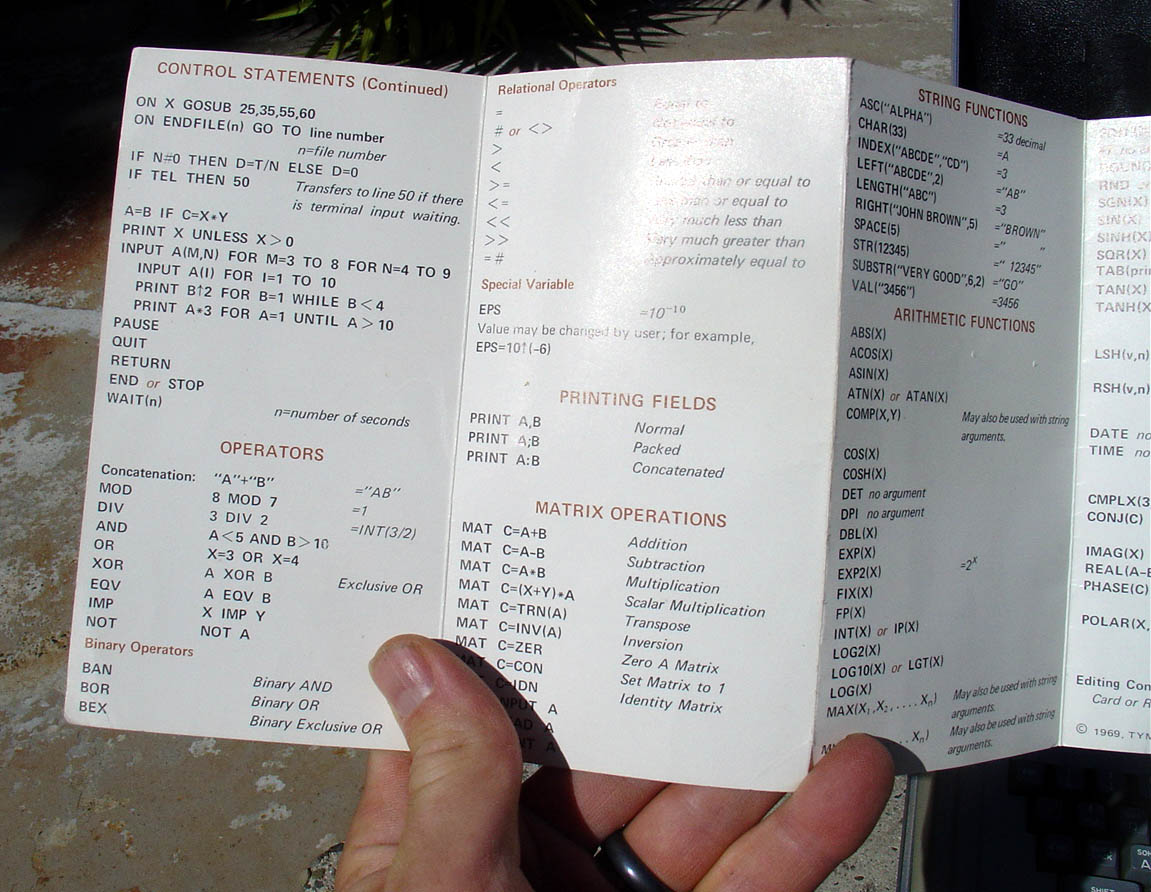 CONTROL STATEMENTS (Continued)
ON X GOSUB 25,35,55,60
ON ENDFILE(n) GO TO line number
n=file number
IF N#0 THEN D=T/N ELSE D=0
IF TEL THEN 50 Transfers to line 50 if there
is terminal input waiting.
A=B IF C=X*Y
PRINT X UNLESS X>0
INPUT A(M,N) FOR M=3 TO 8 FOR N=4 TO 9
INPUT A(I) FOR I=1 TO 10
PRINT B↑2 FOR B=1 WHILE B<4
PRINT A*3 FOR A=1 UNTIL A>10
PAUSE
QUIT
RETURN
END or STOP
WAIT(n) n=number of seconds
OPERATORS
Concatenation: "A"+"B" ="AB"
MOD 8 MOD 7 =1
DIV 3 DIV 2 =INT(3/2)
AND A<5 AND B>10
OR X=3 OR X=4
XOR A XOR B Exclusive OR
EQV A EQV B
IMP X IMP Y
NOT NOT A
Binary Operators
BAN Binary AND
BOR Binary OR
BEX Binary Exclusive OR
Relational Operators
= Equal to
# or <> to
>
<
>= than or equal to
<= than or equal to
<< Very much less than
>> Very much greater than
=# Approximately equal to
Special Variable
EPS =10⁻¹⁰
Value may be changed by user; for example,
EPS=10↑(-6)
PRINTING FIELDS
PRINT A,B Normal
PRINT A;B Packed
PRINT A:B Concatenated
MATRIX OPERATIONS
MAT C=A+B Addition
MAT C=A-B Subtraction
MAT C=A*B Multiplication
MAT C=(X+Y)*A Scalar Multiplication
MAT C=TRN(A) Transpose
MAT C=INV(A) Inversion
MAT C=ZER Zero A Matrix
MAT C=CON Set Matrix to 1
C=IDN Identity Matrix
INPUT A
A
A
STRING FUNCTIONS
ASC("ALPHA") =33 decimal
CHAR(33) =A
INDEX("ABCDE","CD") =3
LEFT("ABCDE",2) ="AB"
LENGTH("ABC") =3
RIGHT("JOHN BROWN",5) ="BROWN"
SPACE(5) =" "
STR(12345) =" 12345"
SUBSTR("VERY GOOD",6,2) ="GO"
VAL("3456") =3456
ARITHMETIC FUNCTIONS
ABS(X)
ACOS(X)
ASIN(X)
ATN(X) or ATAN(X)
COMP(X,Y) May also be used with string
arguments.
COS(X)
COSH(X)
DET no argument
DPI no argument
DBL(X)
EXP(X)
EXP2(X) =2ˣ
FIX(X)
FP(X)
INT(X) or IP(X)
LOG2(X)
LOG10(X) or LGT(X)
LOG(X)
MAX(X₁,X₂,....Xₙ) May also be used with string
arguments.
...Xₙ) May also be used with string
arguments.
RND
SGN(X)
SIN(X)
SINH(X)
SQR(X)
TAB(prin
TAN(X)
TANH(X)
LSH(v,n)
RSH(v,n)
DATE no
TIME no
CMPLX(3
CONJ(C)
IMAG(X)
REAL(A-B
PHASE(C)
POLAR(X,
Editing Con
Card or R
© 1969, TYM
SHIFT